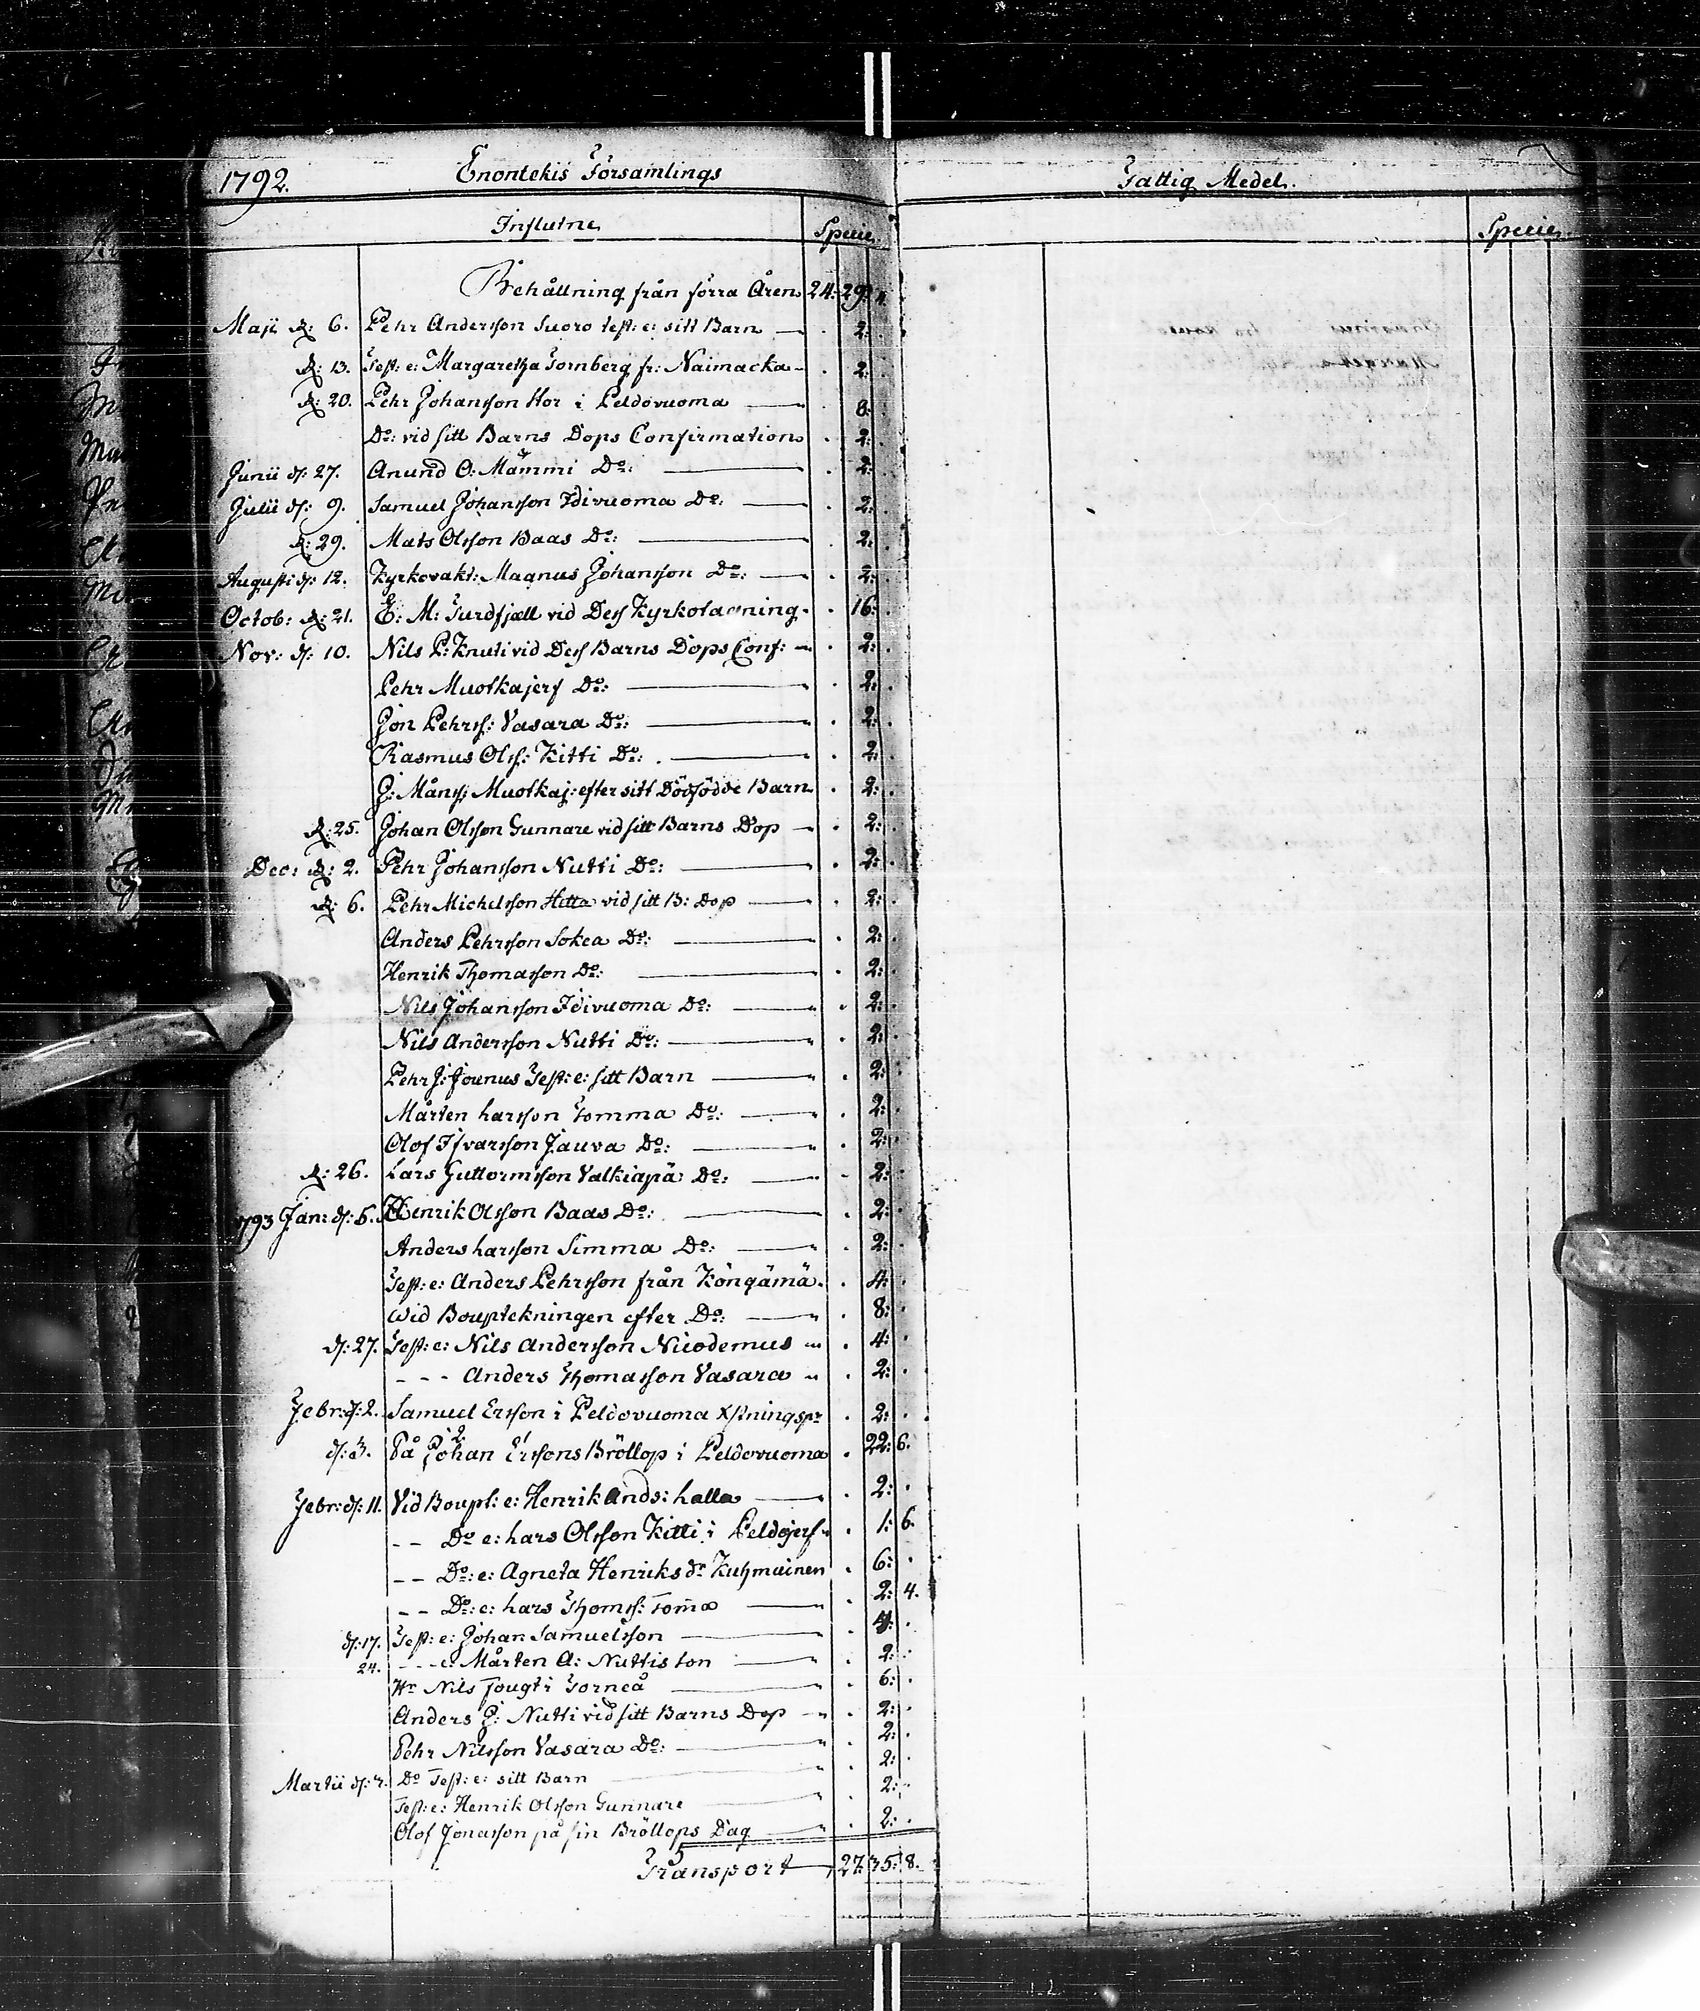 1792. Enontekis Församlings
Influtne Specie
Behållning från förra Åren 24: 29: 4.
Maji d: 6. Pehr Andersson Suoro test: e: sitt Barn . 2: .
d: 13. Test: e: Margaretha Tornberg fr: Naimacka . 2: .
d: 20. Pehr Johansson Hor i Peldovuoma . 8: .
Do: vid sitt Barns Dops Confirmation . 2: .
Junii d: 27. Anund O: Mämmi Do: . 2: .
Julii d: 9. Samuel Johansson Idivuoma Do: . 2: .
d: 29. Mats Olsson Baas Do: . 2: .
August: d: 12. Kyrkovakt: Magnus Johansson Do: . 2: .
Octob: d: 21. E: M: Turdfjæll vid Dess Kyrkotagning . 16: .
Nov: d: 10. Nils P: Knuti vid Dess Barns Dops Conf: . 2: .
Pehr Muotkajerf Do: . 2: .
Jon Pehrss: Vasara Do: . 2: .
Rasmus Olss: Kitti Do: . 2: .
J: Månss: Muotkaj: efter sitt Dödfödde Barn . 2: .
d: 25. Johan Olsson Gunnare vid sitt Barns Dop . 2: .
Dec: d: 2. Pehr Johansson Nutti Do: . 2: .
d: 6. Pehr Michelsson Hetta vid sitt B: Dop . 2: .
Anders Pehrsson Sokca Do: . 2: .
Henrik Thomasson Do: . 2: .
Nils Johansson Idivuoma Do: . 2: .
Nils Andersson Nutti Do: . 2: .
Pehr J: Jounus Test: e: sitt Barn . 2: .
Mårten Larsson Tomma Do: . 2: .
Olof Ifvarsson Jauva Do: . 2: .
d: 26. Lars Guttormsson Valkiapä Do: . 2: .
1793 Jan: d: 6. Henrik Olsson Baas Do: . 2: .
Anders Larsson Simma Do: . 2: .
Test: e: Anders Pehrsson från Köngämä . 4: .
Wid Bouptekningen efter Do: . 8: .
d: 27. Test: e: Nils Andersson Nicodemus . 4: .
- - - Anders Thomasson Vasara . 2: .
Febr: d: 2. Samuel Ersson i Peldovuoma Xstningspr . 2: .
d: 3. På Johan Erssons Bröllop i Peldovuoma . 22: 6.
Febr: d: 11. Vid Boupt: e: Henrik Ands: Lalla . 2: .
- - Do e: Lars Olsson Kitti i Peldojerf . 1: 6.
- - Do: e: Agneta Henriks dr Kuhmainen . 6: .
- - Do: e: Lars Thomss: Tom̄a . 2: 4.
d: 17. Test: e: Johan Samuelsson . 4: .
24. - - e: Mårten A: Nuttis son . 2: .
Hr Nils Fougt i Torneå . 6: .
Anders J: Nutti vid sitt Barns Dop . 2: .
Pehr Nilsson Vasara Do: . 2: .
Martii d: Do Test: e: sitt Barn . 2: .
Test: e: Henrik Olsson Gunnare . 2: .
Olof Jonasson på sin Bröllops Dag . 2: .
Transport 27: 35: 8.
Fattig Medel.
Specie